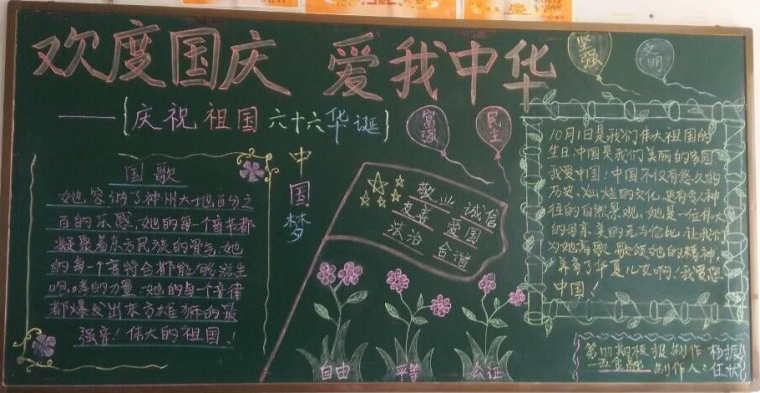 欢度国庆 爱我中华
——{庆祝祖国六十六华诞}
坚强
文明
富强
民主
中国梦
国歌
她容纳了神州大地百分之
百的乐感,她的每一个音节都
凝聚着东方民族的骨气,她
的每一个音符台都能够滋生
的力量,她的每一个音律
都爆发出东方雄狮的最
强音!伟大的祖国!
敬业 诚信
友善 爱国
法治 合谐
自由
平等
公证
10月1日是我们伟大祖国的
生日,中国是我们美丽的家园
我爱中国:中国不仅有悠久的
历史,灿烂的文化,还有令人神
往的自然景观,她是一位伟大
的母亲,美的无与伦比,让我们
为她高歌,歌颂她的精神,
养育了华夏儿女啊,我爱您
中国!
第四期板报制作
制作人: